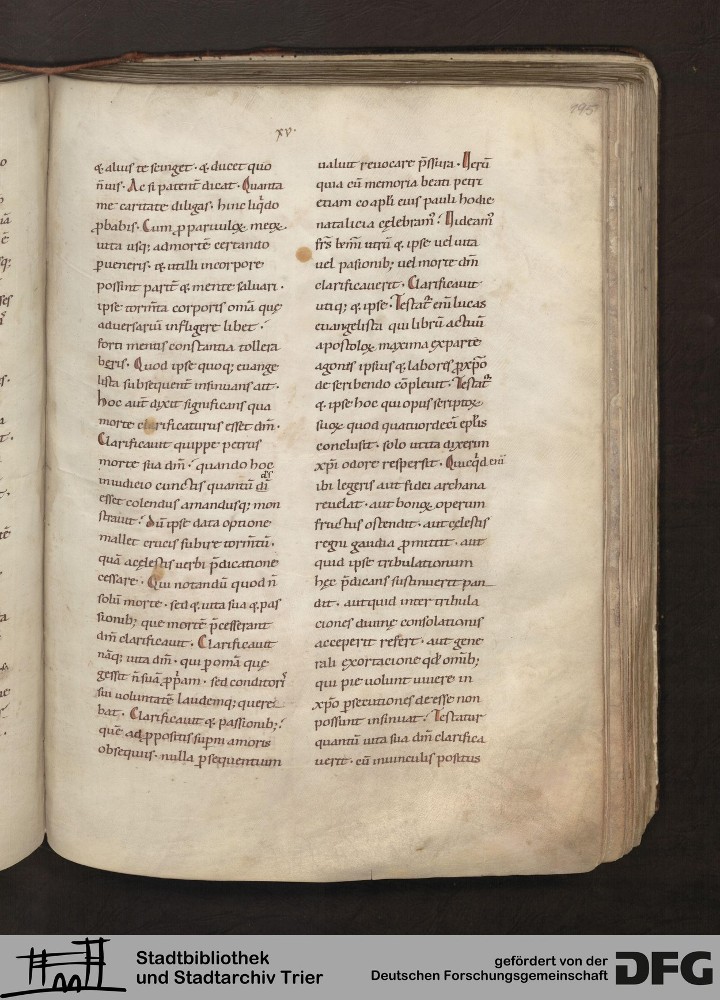 xv·
195
& alius te scinget · & ducet quo
n̄ uis · Ac si patent̄ dicat · Quanta
me caritate diligas · hinc liq́do
ꝓbabis · Cum ꝓ paruuloꝝ meoꝝ
uita usq; ad mortē certando
ꝑueneris · & ut illi incorpore
possint parit̄ & mente saluari ·
ipse torm̄ta corporis om̄a quę
aduersariū infligere libet ·
forti mentis constantia tollera
beris · Quod ipse quoq; euange
lista subsequent̄ insinuans ait ·
hoc aut̄ dixit significans qua
morte clarificaturus esset dm̄ ·
Clarificauit quippe petrus
morte sua dm̄ · quando hoc
in iudicio cunctis quantū d̄i
ds̄
esset colendus amandusq; mon
strauit · Dū ipse data optione
mallet crucis subire torm̄tū ·
quā a cęlestis uerbi p̄dicatione
cessare · Qui notandū quod n̄
solū morte · sed & uita sua & pas
sionib; que mortē p̄cesserant
dm̄ clarificauit · Clarificauit
nāq; uita dm̄ · qui ꝑ om̄a quę
gessit n̄ suā ꝓpam · sed conditorˀ
sui uoluntatē laudemq; quere
bat · Clarificauit & passionib; ·
quē ad ꝓpositis suꝑni amoris
obsequiis · nulla ꝑsequentium
ualuit reuocare p̄ssura · Uerū
quia cū memoria beati petri
etiam coapl̄i eius pauli hodie
natalicia cęlebram̄ · Uideam̄
frs̄ km̄i utrū & ipse uel uita
uel pasionib; uel morte dm̄
clarificauerit · Clarificauit
utiq; & ipse · Testat̄ eni̅ lucas
euangelista qui librū actuū
apostoloꝝ maxima ex parte
agonis ipsius & laboris ꝓ xp̄o
de scribendo cōpleuit · Testat̄
& ipse hoc qui opus scriptoꝝ
suoꝝ quod quatuordeci̅ epl̄is
conclusit · solo ut ita dixerim
xp̄i odore respersit · Quicq́d eni̅
ibi legeris aut fidei archana
reuelat · aut bonoꝝ operum
fructus ostendit · aut cęlestis
regni gaudia ꝓmittit · aut
quid ipse tribulationum
hęc p̄dicans sustinuerit pan
dit · aut quid inter tribula
ciones diuinę consolationis
acceperit refert · aut gene
rali exortacione qd̄ om̄ib;
qui pie uolunt uiuere in
xp̄o ꝑsecutiones deesse non
possunt insinuat · Testatur
quantū uita sua dm̄ clarifica
uerit · cū in uinculis positus
Stadtbibliothek
und Stadtarchiv Trier
gefördert von der
Deutschen Forschungsgemeinschaft
DFG